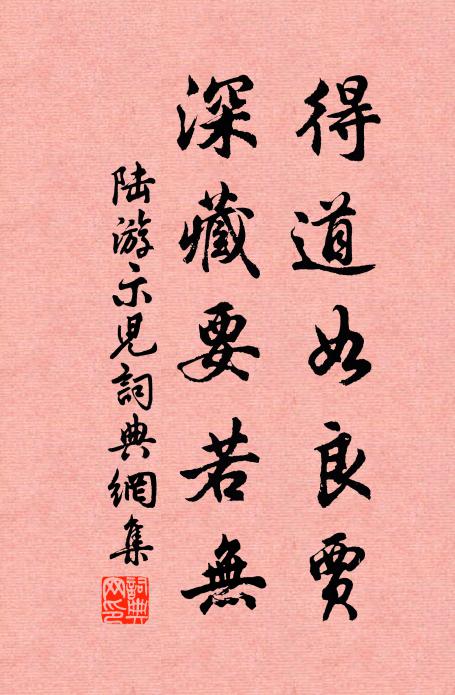 得道如良賈
深藏要若無
陆游示兒詞典網集
詞典网印